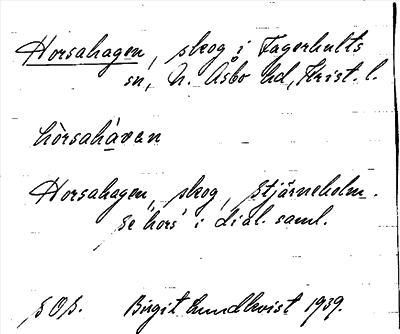 Horsahagen, skog i Fagerhults
sn, N. Åsbo hd, Krist. l.
hòrsahàvan
Horsahagen, skog, Stjärneholm.
Se 'hors' i dial. saml.
SOS. Birgit Lundkvist 1939.